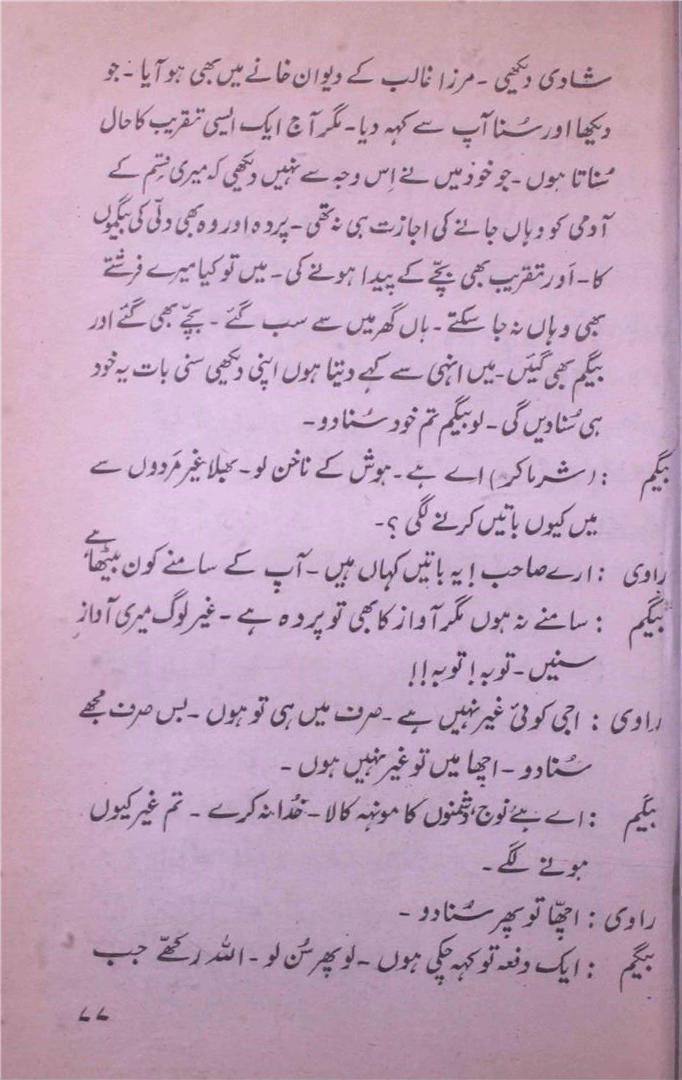 شادی دیکھی - مرزا غالب کے دیوان خانے میں بھی ہو آیا - جو
دیکھا اور سُنا آپ سے کہہ دیا - مگر آج ایک ایسی تقریب کا حال
سُناتا ہوں - جو خود میں نے اِس وجہ سے نہیں دیکھی کہ میری قِسم کے
آدمی کو وہاں جانے کی اجازت ہی نہ تھی - پردہ اور وہ بھی دلّی کی بیگموں
کا - اَور تقریب بھی بچّے کے پیدا ہونے کی - میں تو کیا میرے فرشتے
بھی وہاں نہ جا سکتے - ہاں گھر میں سے سب گئے - بچّے بھی گئے اور
بیگم بھی گئیں - میں انہی سے کہے دیتا ہوں اپنی دیکھی سنی بات یہ خود
ہی سُنادیں گی - لو بیگم تم خود سُنا دو -
بیگم : (شرما کر) اے ہے - ہوش کے ناخن لو - بھلا غیر مَردوں سے
میں کیوں باتیں کرنے لگی ؟ -
راوی : ارے صاحب ! یہ باتیں کہاں ہیں - آپ کے سامنے کون بیٹھا ہے
بیگم : سامنے نہ ہوں مگر آواز کا بھی تو پردہ ہے - غیر لوگ میری آواز
سنیں - توبہ ! توبہ !!
راوی : اجی کوئی غیر نہیں ہے - صرف میں ہی تو ہوں - بس صرف مجھے
سُنا دو - اچھا میں تو غیر نہیں ہوں -
بیگم : اے ہئے نوج، دشمنوں کا مونہہ کالا - خُدا نہ کرے - تم غیر کیوں
ہونے لگے -
راوی : اچھّا تو پھر سُنا دو -
بیگم : ایک دفعہ تو کہہ چکی ہوں - لو پھر سُن لو - اللہ رکھّے جب
۷۷